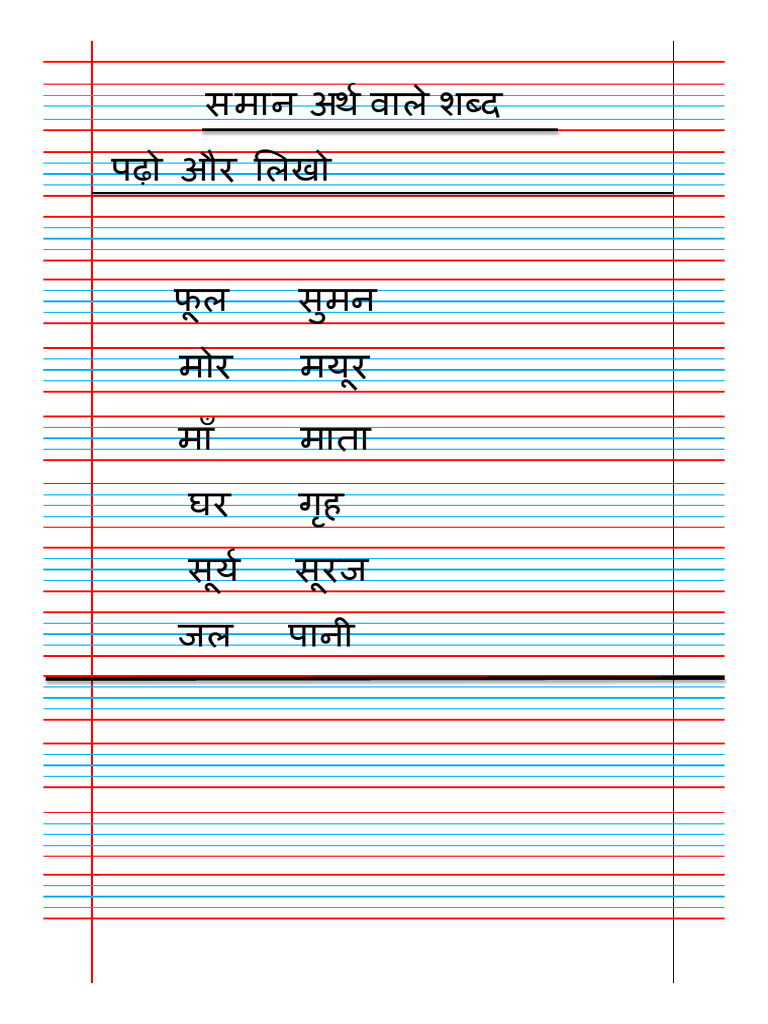 समान अर्थ वाले शब्द
पढ़ो और लिखो
फूल सुमन
मोर मयूर
माँ माता
घर गृह
सूर्य सूरज
जल पानी